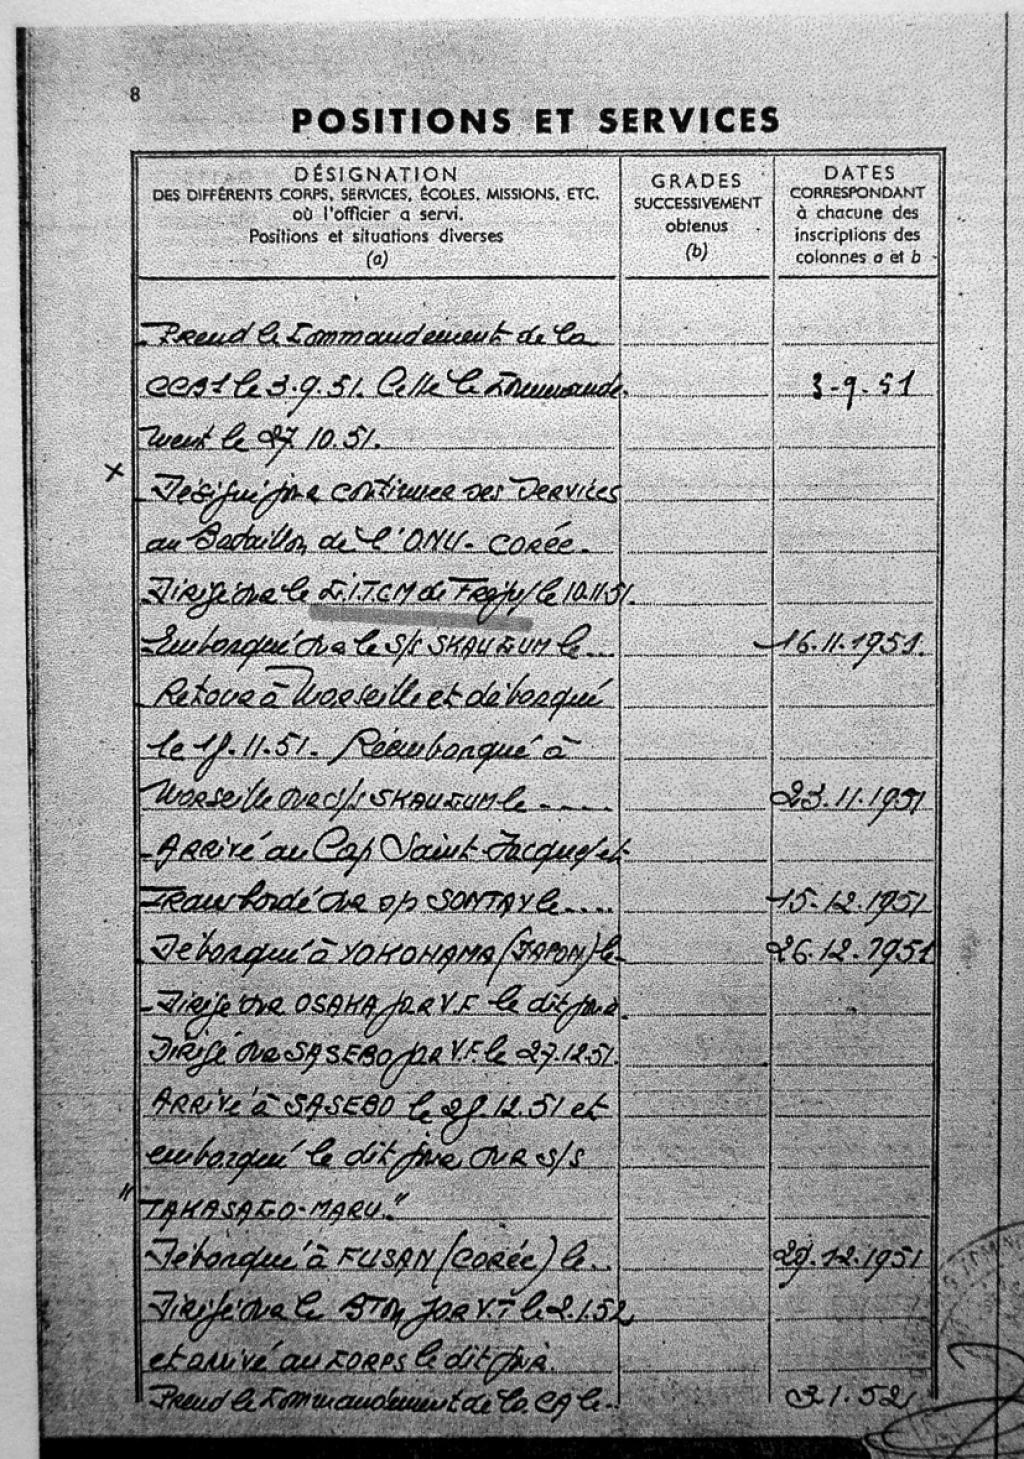 8
POSITIONS ET SERVICES
DÉSIGNATION
DES DIFFÉRENTS CORPS, SERVICES, ÉCOLES, MISSIONS, ETC.
où l'officier a servi.
Positions et situations diverses
(a)
GRADES
SUCCESSIVEMENT
obtenus
(b)
DATES
CORRESPONDANT
à chacune des
inscriptions des
colonnes a et b
Prend le Commandement de la
le 3.9.51. Cesse le Commande- 3-9-51
ment le 27.10.51.
x Désigné pour continuer ses Services
au Bataillon de l'ONU - CORÉE.
Dirigé sur le de Fréjus le 10.11.51.
Embarqué sur le S/S SKAUGUM le... 16.11.1951.
Retour à Marseille et débarqué
le 18.11.51. Réembarqué à
Marseille sur s/s SKAUGUM le .... 23.11.1951
Arrivé au Cap Saint-Jacques et
Transbordé sur SONTAY le.... 15.12.1951
Débarqué à YOKOHAMA (JAPON) le 26.12.1951
Dirigé sur OSAKA par V.F. le dit jour.
Dirigé sur SASEBO par V.F. le 27.12.51.
Arrivé à SASEBO le 28.12.51 et
embarqué le dit jour sur S/S
"TAKASAGO-MARU."
Débarqué à FUSAN (CORÉE) le.. 29.12.1951
Dirigé sur le BTon par le 2.1.52
et arrivé au CORPS le dit jour.
Prend le Commandement de la CA le.. 1.52